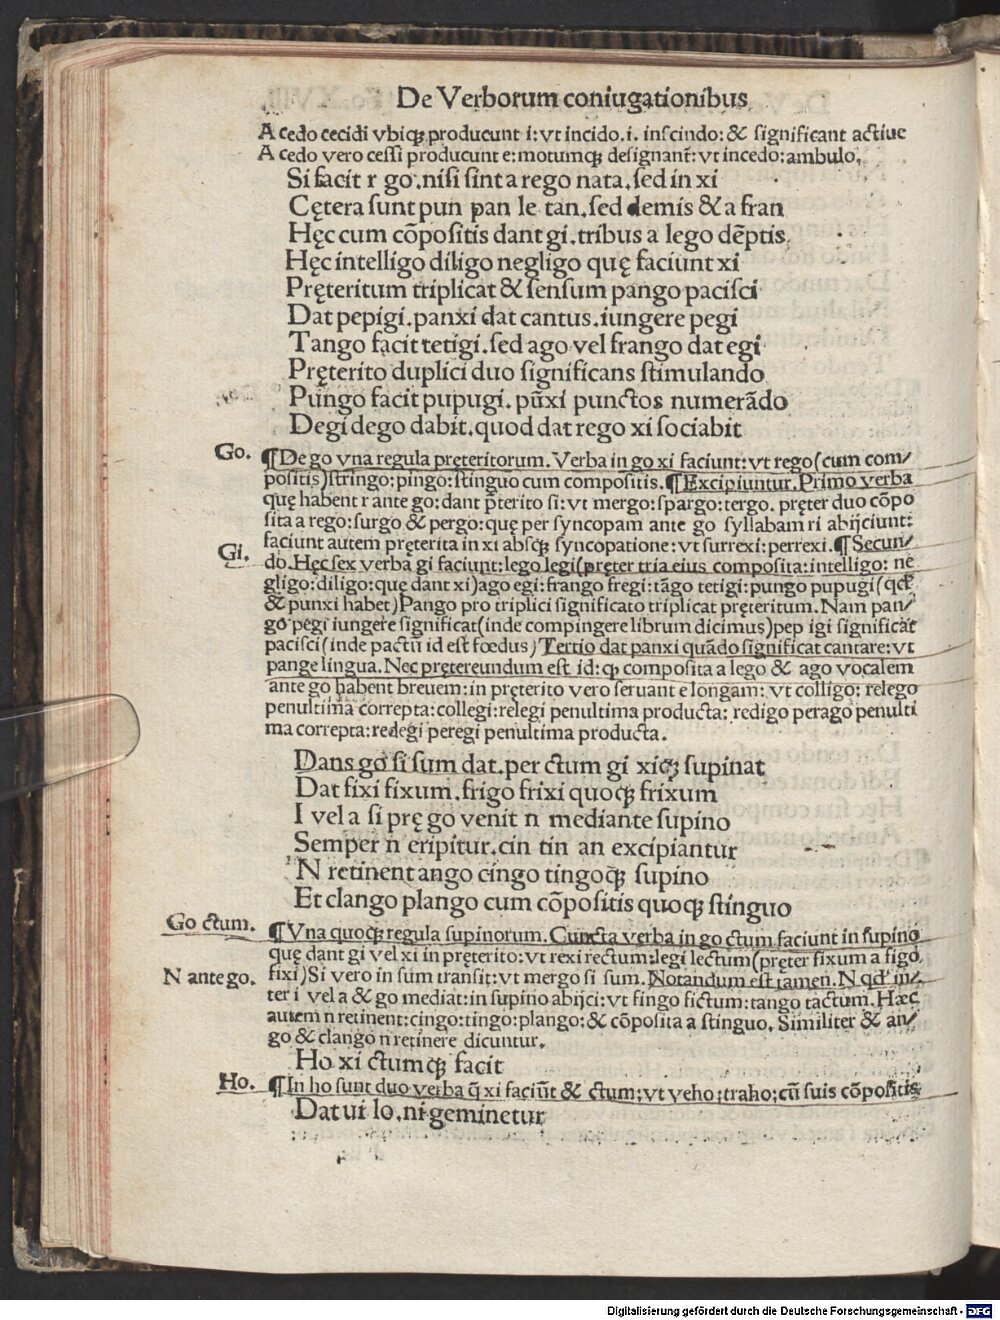 De Verborum coniugationibus
A cedo cecidi vbiqꝫ producunt i: vt incido .i. inſcindo: & ſignificant actiue
A cedo vero ceſſi producunt e: motumqꝫ deſignant̃: vt incedo: ambulo.
Si facit r go. niſi ſint a rego nata. ſed in xi
Cętera ſunt pun pan le tan. ſed demis & a fran
Hęc cum cõpoſitis dant gi. tribus a lego dẽptis
Hęc intelligo diligo negligo quę faciunt xi
Pręteritum triplicat & ſenſum pango paciſci
Dat pepigi. panxi dat cantus. iungere pegi
Tango facit tetigi. ſed ago vel frango dat egi
Pręterito duplici duo ſignificans ſtimulando
Pungo facit pupugi. pũxi punctos numerãdo
Degi dego dabit. quod dat rego xi ſociabit
Go.
¶De go vna regula pręteritorum. Verba in go xi faciunt: vt rego (cum com/
poſitis) ſtringo: pingo: ſtinguo cum compoſitis. ¶Excipiuntur. Primo verba
quę habent r ante go: dant p̃terito ſi: vt mergo: ſpargo: tergo. pręter duo cõpo
ſita a rego: ſurgo & pergo: quę per ſyncopam ante go ſyllabam ri abijciunt:
faciunt autem pręterita in xi abſqꝫ ſyncopatione: vt ſurrexi: perrexi. ¶Secun/
Gi.
do. Hęc ſex verba gi faciunt: lego legi (pręter tria eius compoſita: intelligo: ne
gligo: diligo: que dant xi) ago egi: frango fregi: tãgo tetigi: pungo pupugi (qd̛
& punxi habet) Pango pro triplici ſignificato triplicat pręteritum. Nam pan/
go pegi iungere ſignificat (inde compingere librum dicimus) pep igi ſignificat
paciſci (inde pactũ id eſt fœdus) Tertio dat panxi quãdo ſignificat cantare: vt
pange lingua. Nec prętereundum eſt id: ꝙ compoſita a lego & ago vocalem
ante go habent breuem: in pręterito vero ſeruant e longam: vt colligo: relego
penultima correpta: collegi: relegi penultima producta: redigo perago penulti
ma correpta: redegi peregi penultima producta.
Dans go ſi ſum dat. per ctum gi xiqꝫ ſupinat
Dat fixi fixum. frigo frixi quoqꝫ frixum
I vel a ſi prę go venit n mediante ſupino
Semper n eripitur. cin tin an excipiantur
N retinent ango cingo tingoqꝫ ſupino
Et clango plango cum cõpoſitis quoqꝫ ſtinguo
Go ctum.
¶Vna quoqꝫ regula ſupinorum. Cuncta verba in go ctum faciunt in ſupino
quę dant gi vel xi in pręterito: vt rexi rectum: legi lectum (pręter fixum a figo
N ante go.
fixi) Si vero in ſum tranſit: vt mergo ſi ſum. Notandum eſt tamen. N qd̛ in/
ter i vel a & go mediat: in ſupino abijci: vt fingo fictum: tango tactum. Hæc
autem n retinent: cingo: tingo: plango: & cõpoſita a ſtinguo. Similiter & an/
go & clango n retinere dicuntur.
Ho xi ctumqꝫ facit
Ho.
¶In ho ſunt duo verba q̃ xi faciũt & ctum: vt veho: traho: cũ ſuis cõpoſitis
Dat ui lo. ni geminetur
Digitalisierung gefördert durch die Deutsche Forschungsgemeinschaft - DFG